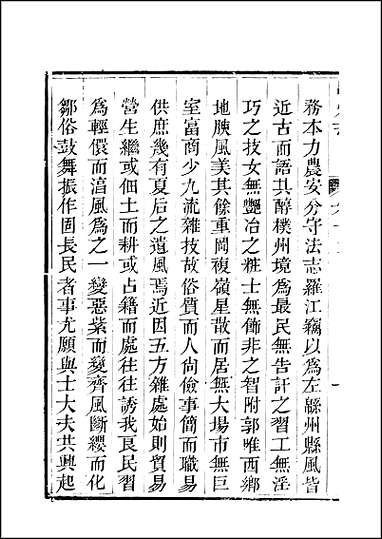 務本力農安分守法志羅江竊以為左緜州縣風皆
近古而語其醇樸州境為最民無告訐之習工無淫
巧之技女無豔冶之粧士無飾非之智附郭唯西鄉
地腴風美其餘重岡複嶺星散而居無大場市無巨
室富商少九流雜技故俗質而人尚儉事簡而職易
供庶幾有夏后之遺風焉近因五方雜處始則貿易
營生繼或佃土而耕或占籍而處往往誘我良民習
為輕儇而澆風為之一變惡葉而變齊風斷纓而化
鄒俗鼓舞振作固長民者事尤願與士大夫共興起